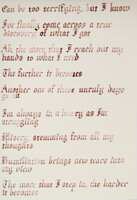 Can be too terrifying, but I know
I've finally come across a true
discovery of what I got
All the more ting I reach out my
hands to what I need
The further it becomes
Another one of these unruly days
go
I'm always in a hurry as I'm
struggling
Misery, stemming from all my
thoughts
Humiliation brings new ways into
my view
The more that I stop to, the harder
it becomes